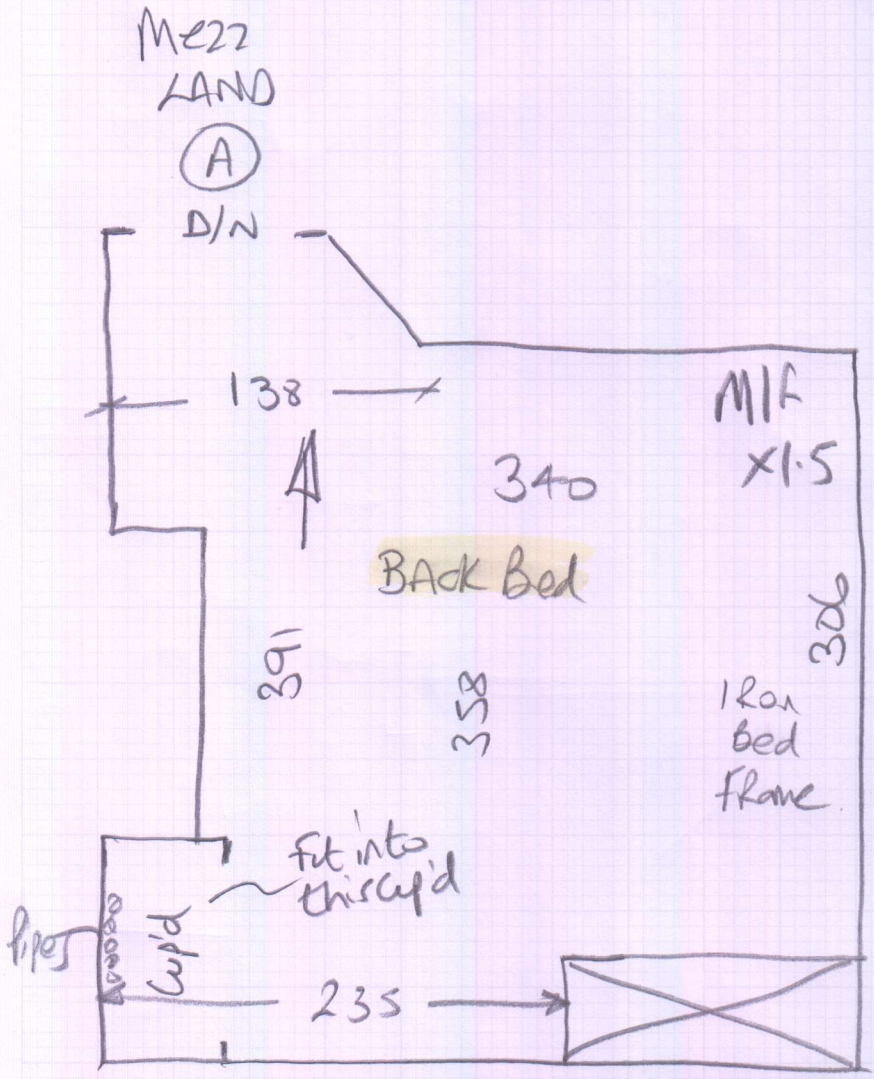 Mezz
LAND
A
D/N
138
M/F
X1.5
340
BAck Bed
306
391
358
IRon
Bed
FRame
Fit into
this Cup'd
Pipes
Cup'd
235